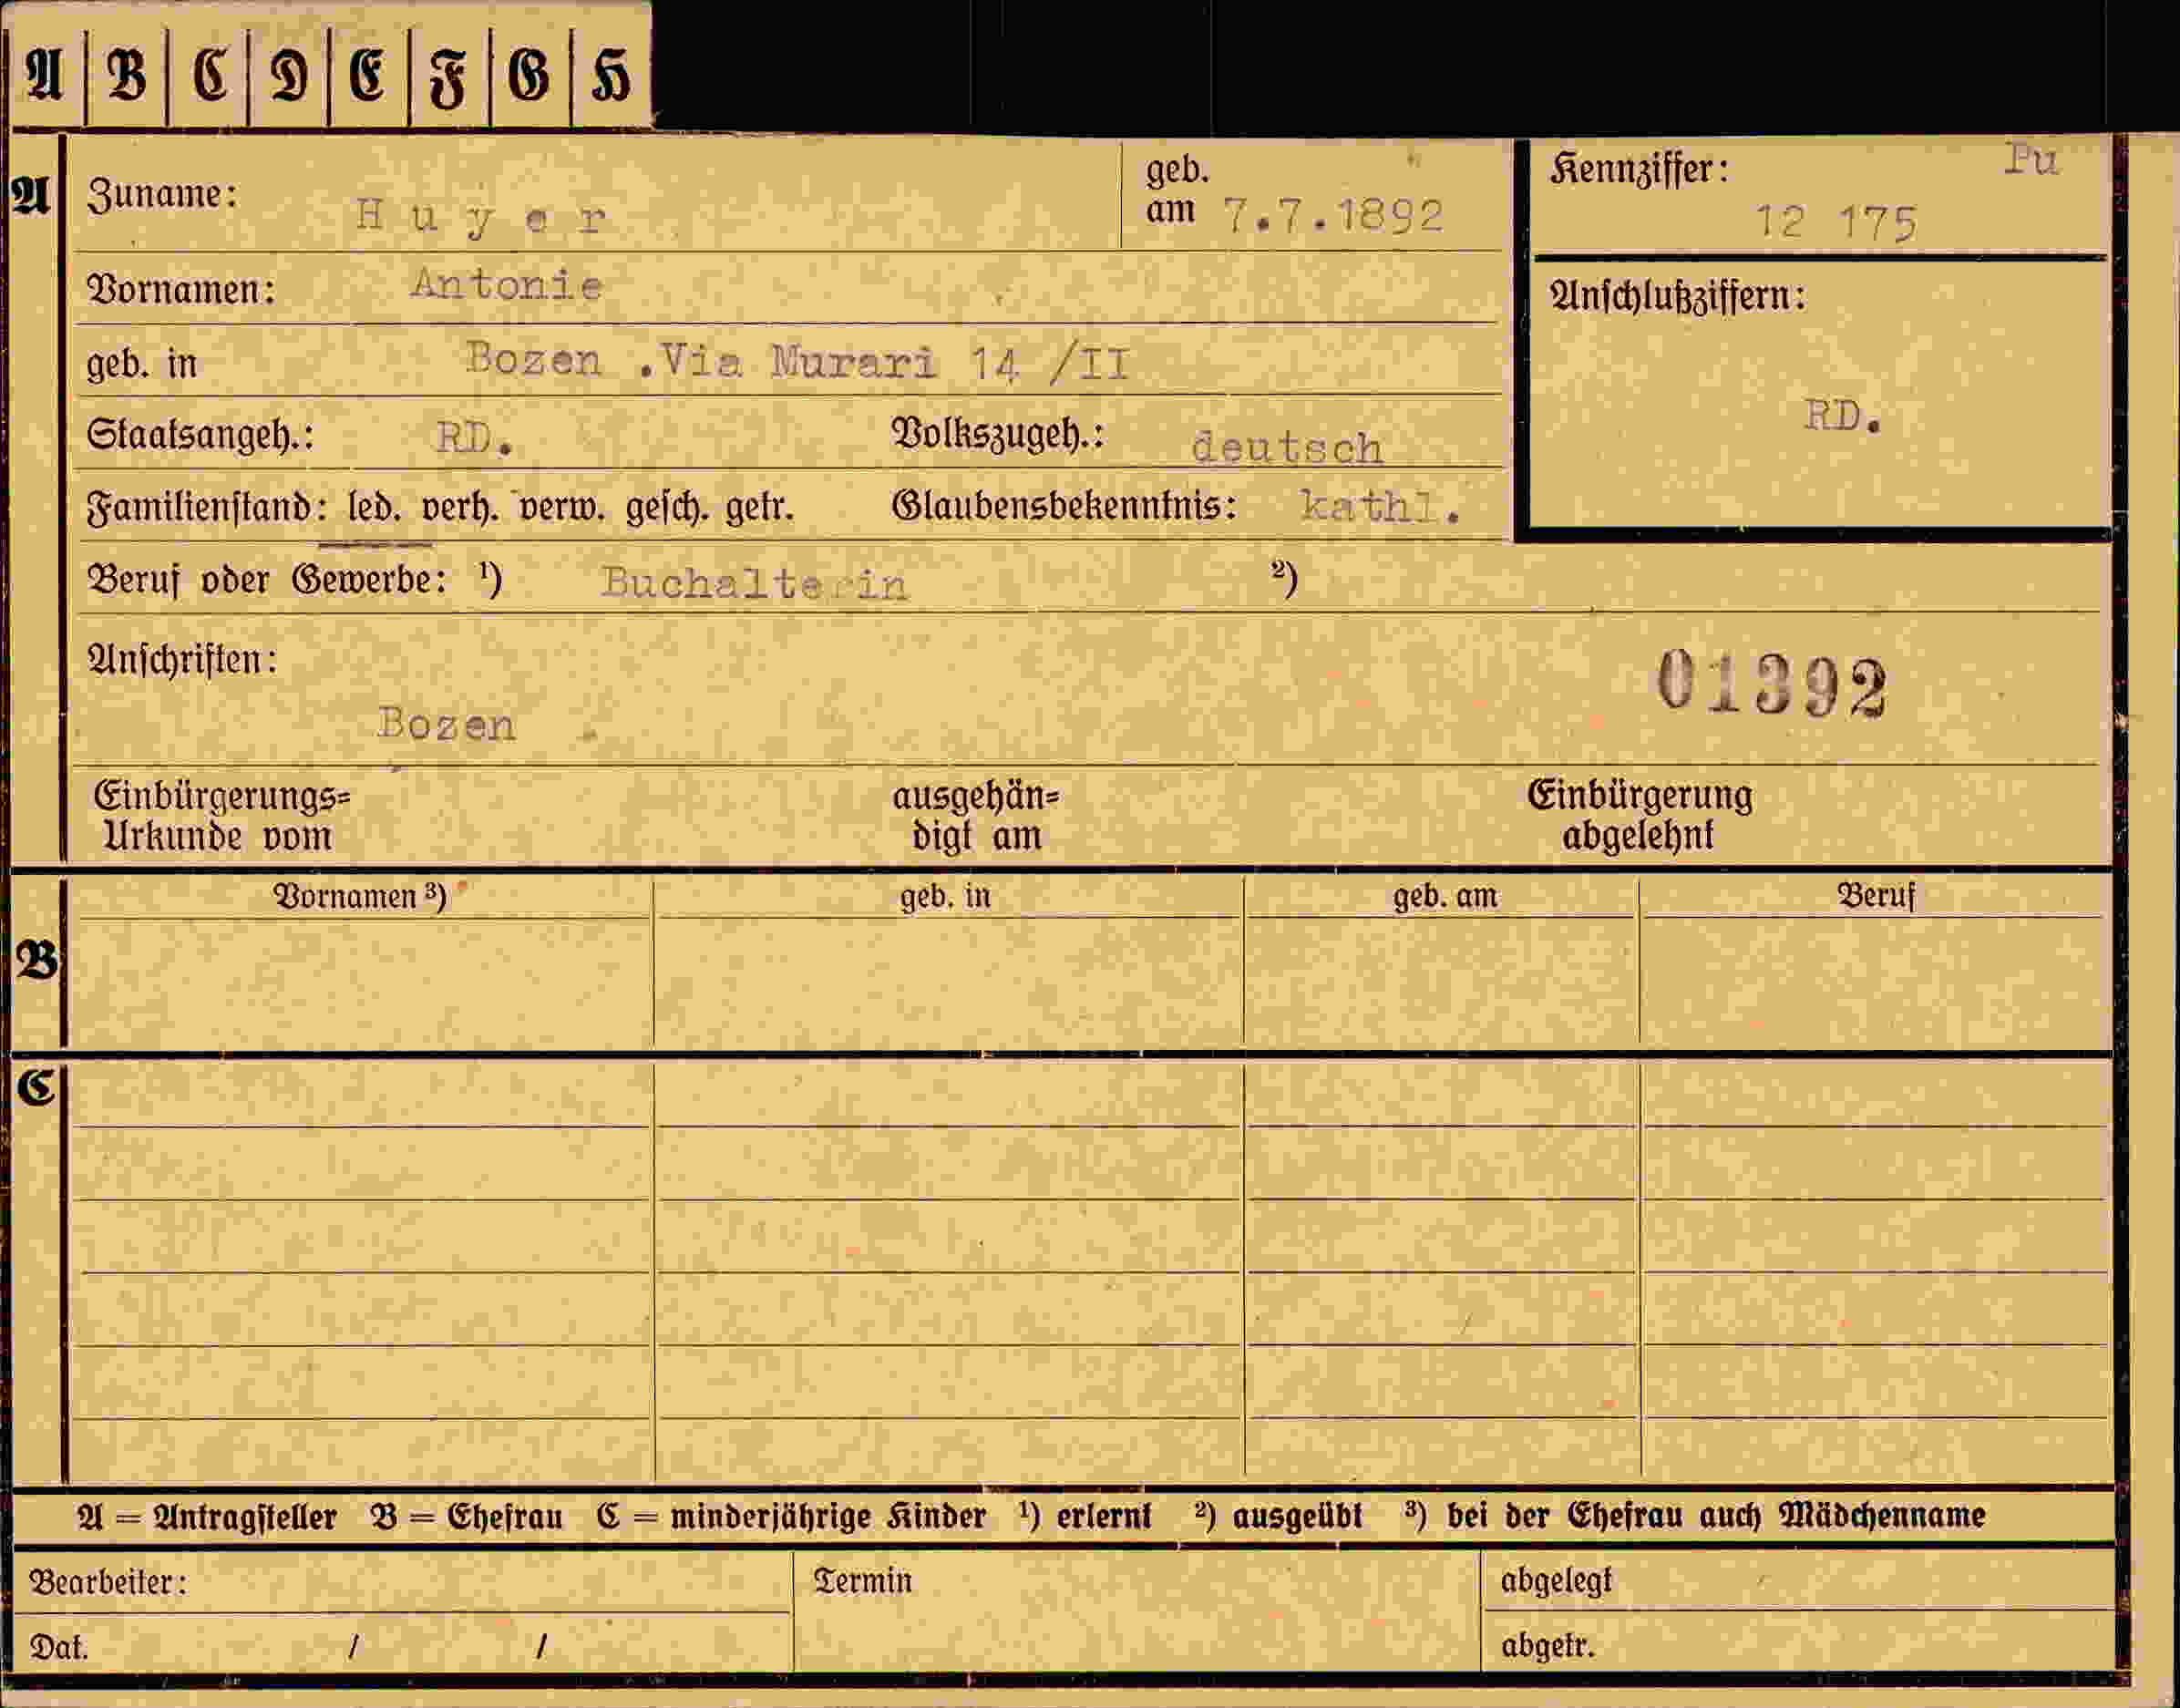 A B C D E F G H
A Zuname: Huyer geb. am 7.7.1892 Kennziffer: Pu 12 175
Vornamen: Antonie Anschlußziffern:
geb. in Bozen .Via Murari 14 /II
Staatsangeh.: RD. Volkszugeh.: deutsch RD.
Familienstand: led. verh. verw. gesch. getr. Glaubensbekenntnis: kathl.
Beruf oder Gewerbe: ¹) Buchalterin ²)
Anschriften: 01392
Bozen
Einbürgerungs= ausgehän= Einbürgerung
Urkunde vom digt am abgelehnt
Vornamen ³) geb. in geb. am Beruf
B
C
A = Antragsteller B = Ehefrau C = minderjährige Kinder ¹) erlernt ²) ausgeübt ³) bei der Ehefrau auch Mädchenname
Bearbeiter: Termin abgelegt
Dat. / / abgetr.